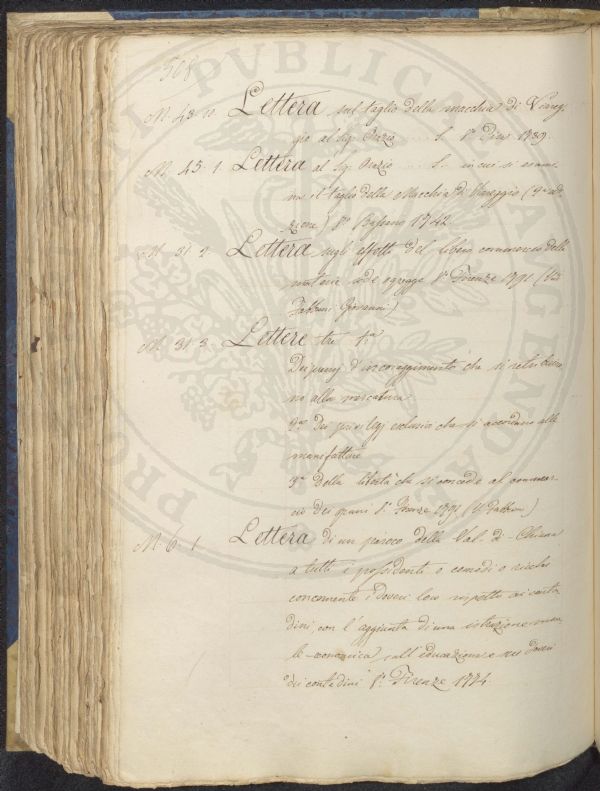 508
M. 43. 10 Lettera sul taglio della macchia di Viareg
gio al Sig. Orazio ...... S. 8º 1739.
M. 45. 1 Lettera al Sig. Orazio ..... S. in cui si esami
na il taglio della Macchia di Viareggio (2ª edi
zione) 8º Bassano 1742
M. 31. 2 Lettera sugli effetti del libero commercio delle
materie sode e gregge 8º Firenze 1791 (
Fabbroni Giovanni)
M. 31. 3 Lettere tre 1ª
Dei premj d'incoraggimento che si
no alla mercatura
2ª dei privilegj esclusivi che si accordano alle
manifatture
3ª Della libertà che si concede al commer
cio dei grani 8º Firenze 1791 (V. Fabbroni)
M. 6. 1 Lettera di un paroco della Val di Chiana
a tutti i possidenti o comodi o ricchi
concernente i doveri loro rispetto ai conta
dini, con l'aggiunta di una istruzione mora
le-economica sull'educazione e sui doveri
dei contadini 8º Firenze 1774
PRO PUBLICA AGENDAE